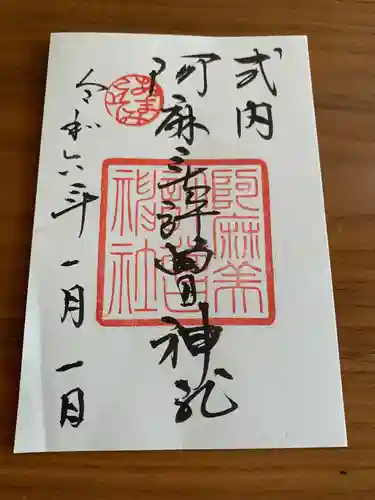 式内
阿麻美許曽神社
令和六年一月一日
阿麻美
許曽
神社